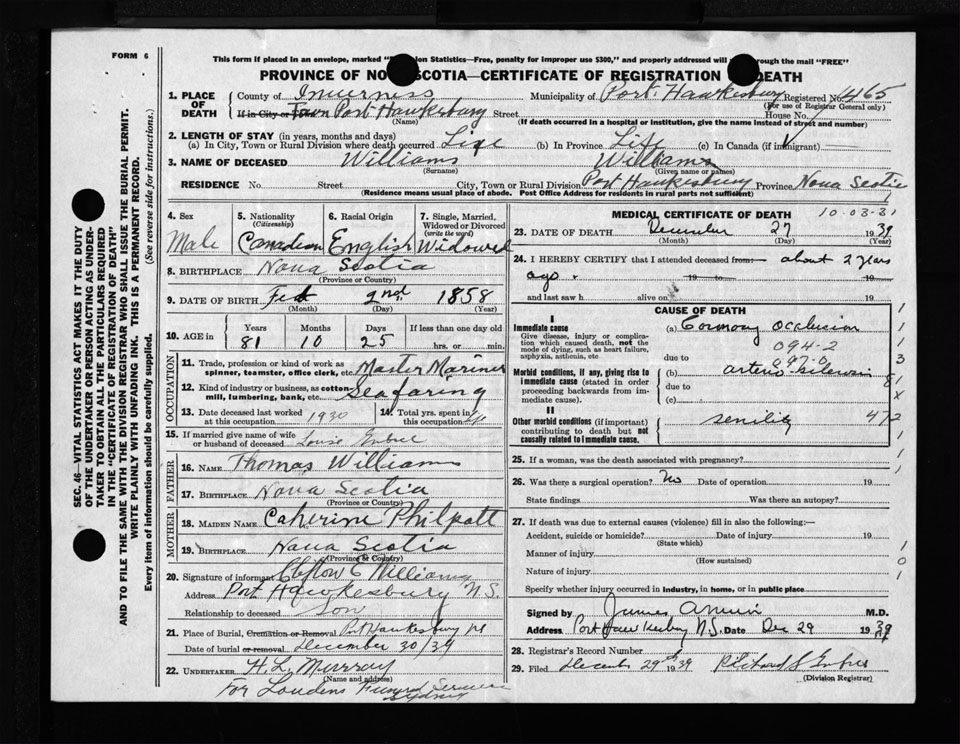 FORM 6
This form if placed in an envelope, marked "    on Statistics—Free, penalty for improper use $300," and properly addressed will     through the mail "FREE"
PROVINCE OF NO   SCOTIA—CERTIFICATE OF REGISTRATION   DEATH
1. PLACE OF DEATH County of Inverness Municipality of Port Hawkesbury Registered No. 465
(For use of Registrar General only)
If in City or Town Port Hawkesbury Street House No.
(Name) (If death occurred in a hospital or institution, give the name instead of street and number)
2. LENGTH OF STAY (in years, months and days)
(a) In City, Town or Rural Division where death occurred Life (b) In Province Life (c) In Canada (if immigrant)
3. NAME OF DECEASED Williams Williams
(Surname) (Given name or names)
RESIDENCE No. Street City, Town or Rural Division Port Hawkesbury Province Nova Scotia
(Residence means usual place of abode. Post Office Address for residents in rural parts not sufficient)
SEC. 46—VITAL STATISTICS ACT MAKES IT THE DUTY
OF THE UNDERTAKER OR PERSON ACTING AS UNDER-
TAKER TO OBTAIN ALL THE PARTICULARS REQUIRED
IN THE "CERTIFICATE OF REGISTRATION OF DEATH"
AND TO FILE THE SAME WITH THE DIVISION REGISTRAR WHO SHALL ISSUE THE BURIAL PERMIT.
WRITE PLAINLY WITH UNFADING INK. THIS IS A PERMANENT RECORD.
Every item of information should be carefully supplied. (See reverse side for instructions.)
4. Sex 5. Nationality (Citizenship) 6. Racial Origin 7. Single, Married, Widowed or Divorced (write the word)
Male Canadian English Widowed
8. BIRTHPLACE Nova Scotia
(Province or Country)
9. DATE OF BIRTH Feb 2nd 1858
(Month) (Day) (Year)
10. AGE in Years Months Days If less than one day old
81 10 25 hrs. or min.
OCCUPATION
11. Trade, profession or kind of work as spinner, teamster, office clerk, etc. Master Mariner
12. Kind of industry or business, as cotton mill, lumbering, bank, etc. Seafaring
13. Date deceased last worked at this occupation 1930 14. Total yrs. spent in this occupation
15. If married give name of wife or husband of deceased Louise Embree
FATHER
16. NAME Thomas Williams
17. BIRTHPLACE Nova Scotia
(Province or Country)
MOTHER
18. MAIDEN NAME Catherine Philpott
19. BIRTHPLACE Nova Scotia
(Province or Country)
20. Signature of informant Clifton E Williams
Address Port Hawkesbury N.S.
Relationship to deceased Son
21. Place of Burial, Cremation or Removal Port Hawkesbury NS
Date of burial or removal December 30/39
22. UNDERTAKER H. L. Murray
(Name and address)
For Loudens Funeral Service
Sydney
MEDICAL CERTIFICATE OF DEATH 10-03-31
23. DATE OF DEATH December 27 1939
(Month) (Day) (Year)
24. I HEREBY CERTIFY that I attended deceased from about 2 years
ago 19 to 19
and last saw h alive on 19
CAUSE OF DEATH
I
Immediate cause (a) Coronary occlusion
Give disease, injury or complication which caused death, not the mode of dying, such as heart failure, asphyxia, asthenia, etc. 094-2
due to 097-0
Morbid conditions, if any, giving rise to immediate cause (stated in order proceeding backwards from immediate cause). (b) arterio-sclerosis
due to
(c)
II
Other morbid conditions (if important) contributing to death but not causally related to immediate cause. senility 472
25. If a woman, was the death associated with pregnancy?
26. Was there a surgical operation? No Date of operation 19
State findings Was there an autopsy?
27. If death was due to external causes (violence) fill in also the following:—
Accident, suicide or homicide? Date of injury 19
(State which)
Manner of injury
(How sustained)
Nature of injury
Specify whether injury occurred in industry, in home, or in public place
Signed by James M.D.
Address Port Hawkesbury N.S. Date Dec 29 1939
28. Registrar's Record Number
29. Filed December 29th 1939
(Division Registrar)